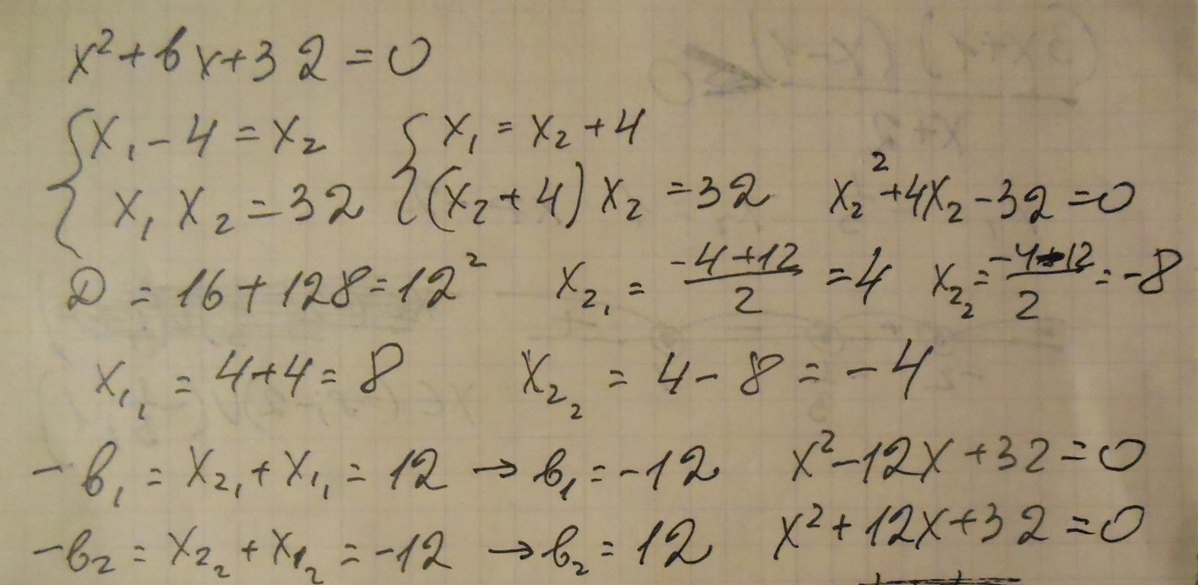 x² + bx + 32 = 0
{ x₁ - 4 = x₂ { x₁ = x₂ + 4
x₁ x₂ = 32 (x₂ + 4) x₂ = 32 x₂² + 4x₂ - 32 = 0
D = 16 + 128 = 12² x₂₁ = (-4 + 12)/2 = 4 x₂₂ = (-4 - 12)/2 = -8
x₁₁ = 4 + 4 = 8 x₂₂ = 4 - 8 = -4
-b₁ = x₂₁ + x₁₁ = 12 → b₁ = -12 x² - 12x + 32 = 0
-b₂ = x₂₂ + x₁₂ = -12 → b₂ = 12 x² + 12x + 32 = 0